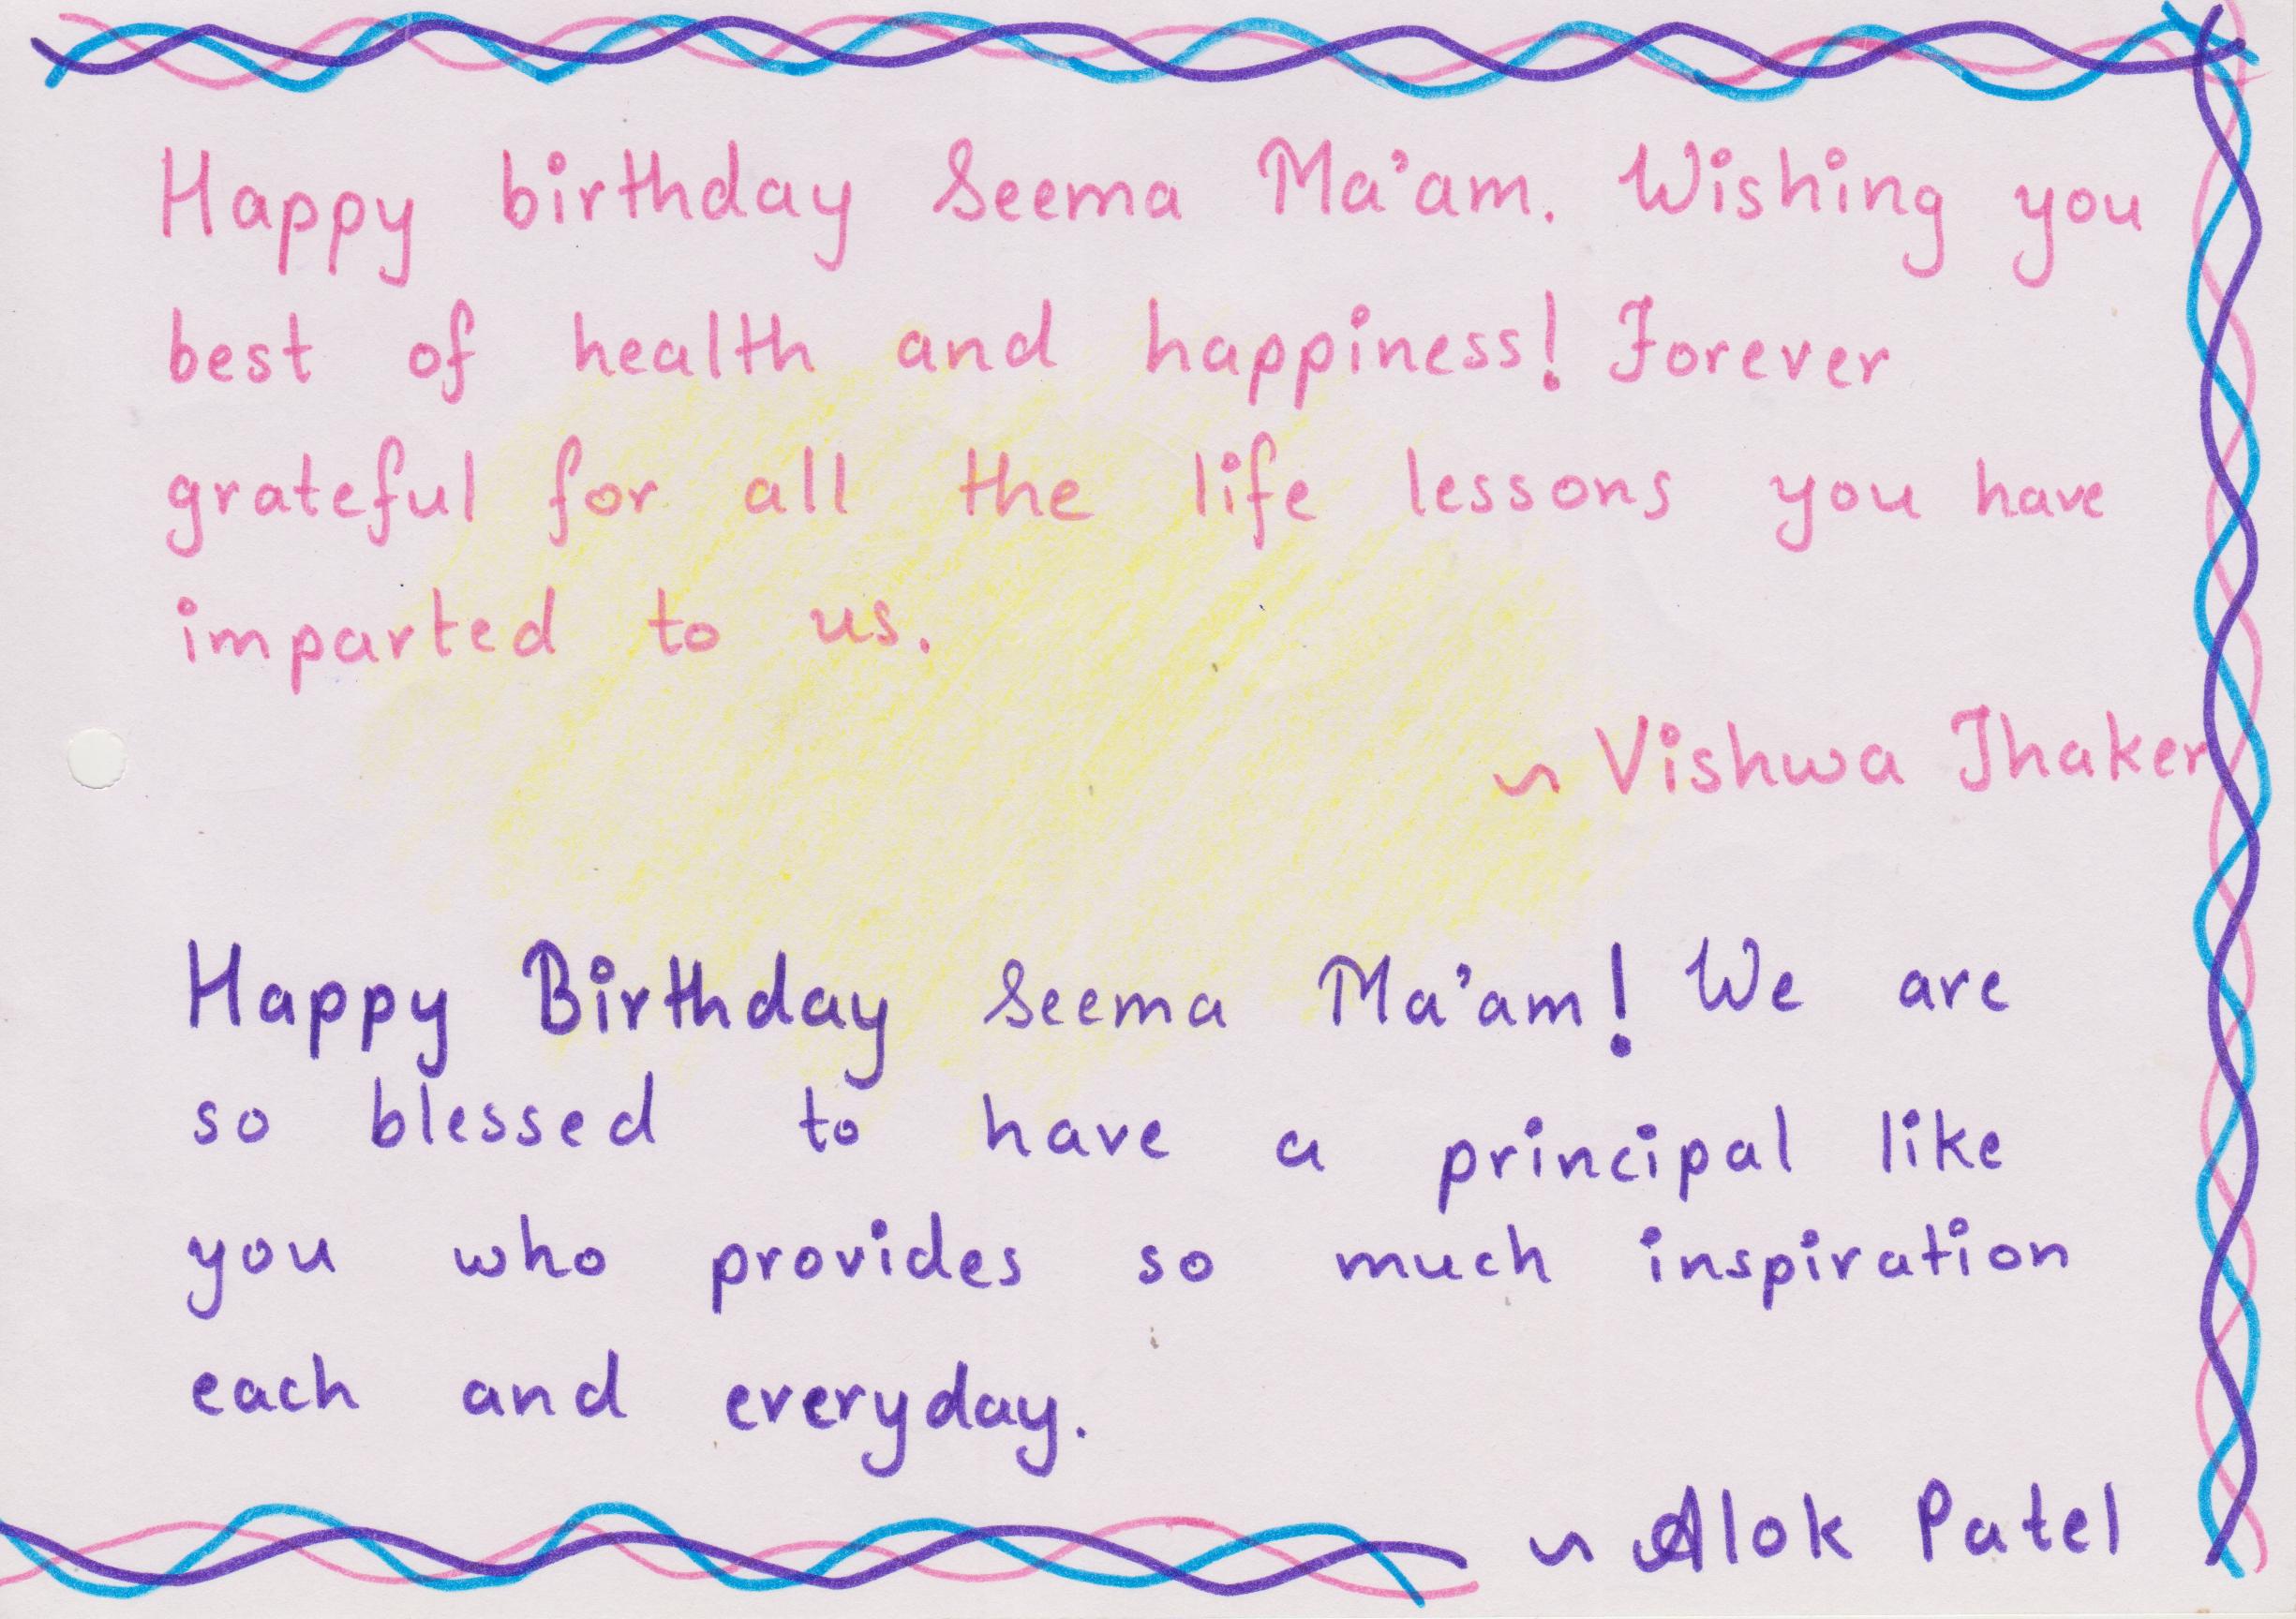 Happy birthday Seema Ma'am. Wishing you
best of health and happiness! Forever
grateful for all the life lessons you have
imparted to us.
~ Vishwa Thaker
Happy Birthday Seema Ma'am! We are
so blessed to have a principal like
you who provides so much inspiration
each and everyday.
~ Alok Patel